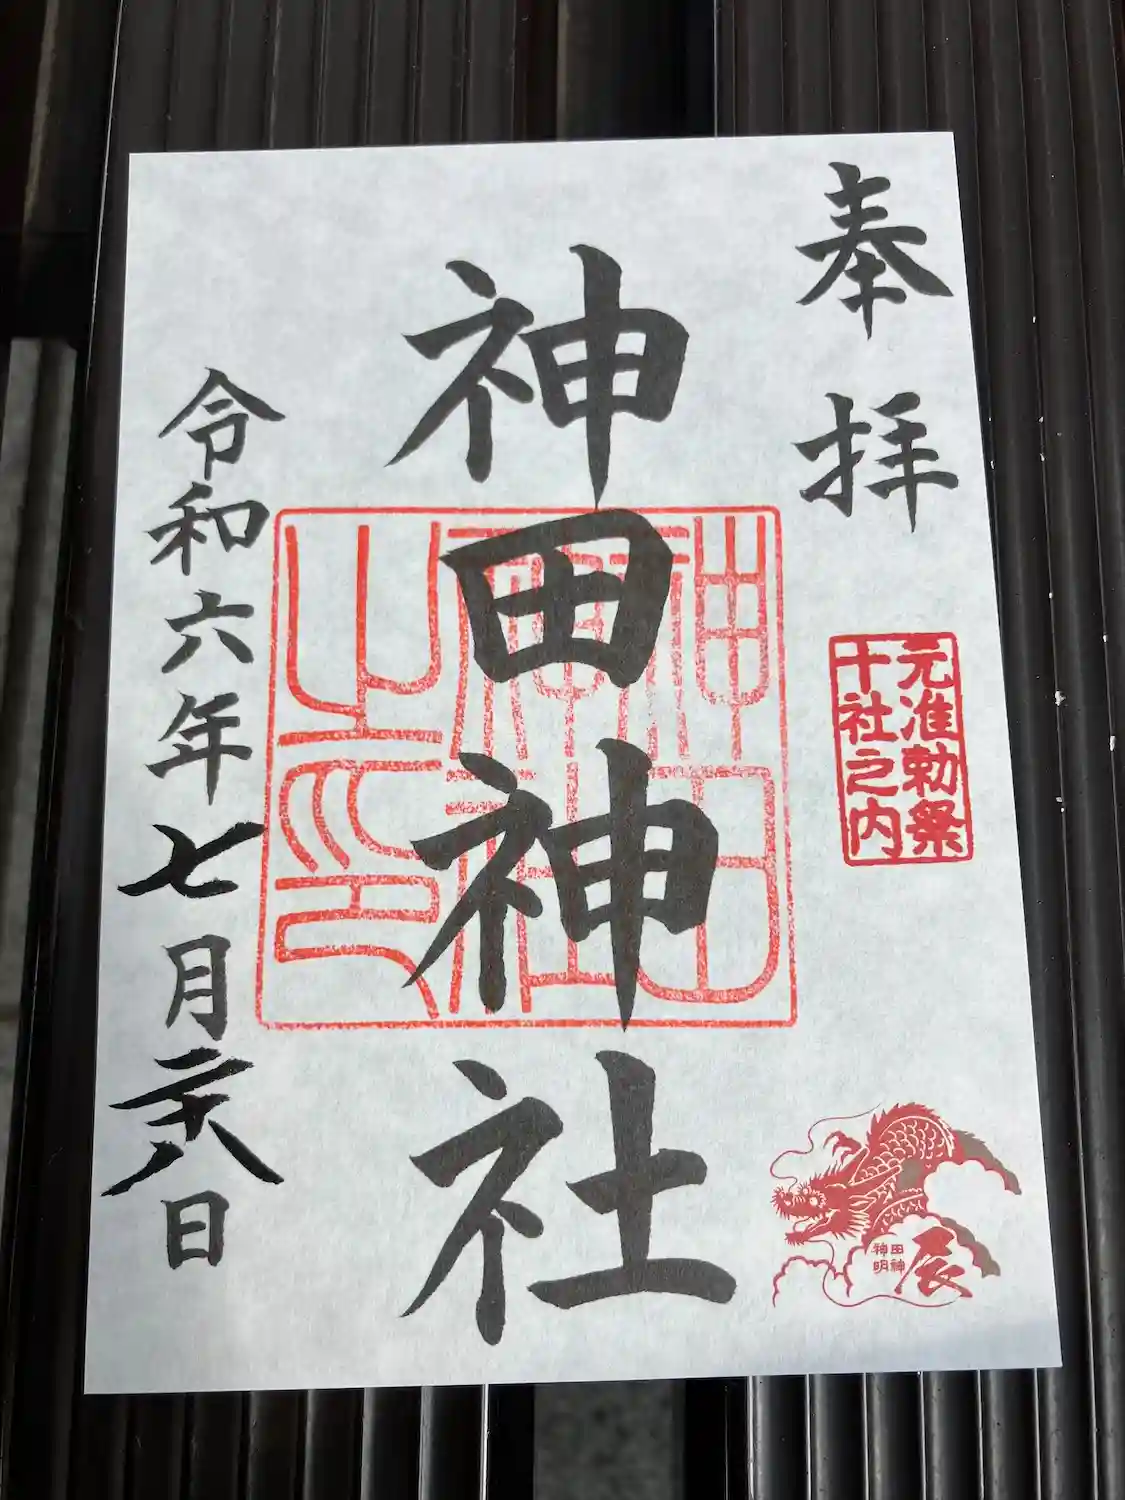 奉拝
元准勅祭
十社之内
神田
明神
辰
神田神社
神田
神社
之印
令和六年七月二十八日